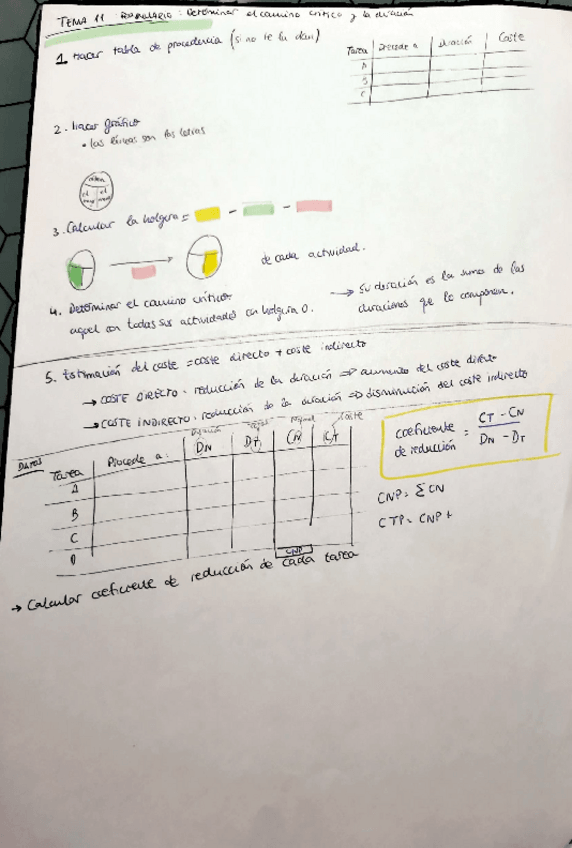 TEMA 11 FORMULARIO: Determinar el camino crítico y la duración
1. Hacer tabla de procedencia (si no te la dan)
Tarea Precede a Duración Coste
A
B
C
2. Hacer gráfico
• las tareas son las letras
3. Calcular la holgura = - -
de cada actividad.
4. Determinar el camino crítico
aquel con todas sus actividades con holgura 0.
→ Su duración es la suma de las
duraciones que lo componen.
5. Estimación del coste = coste directo + coste indirecto
→ COSTE DIRECTO: reducción de la duración ⇒ aumento del coste directo
→ COSTE INDIRECTO: reducción de la duración ⇒ disminución del coste indirecto
DATOS
Tarea Precede a: DN DT CN CT
A
B
C
D
CNP
coeficiente de reducción = CT - CN / DN - DT
CNP = Σ CN
CTP = CNP +
→ Calcular coeficiente de reducción de cada tarea